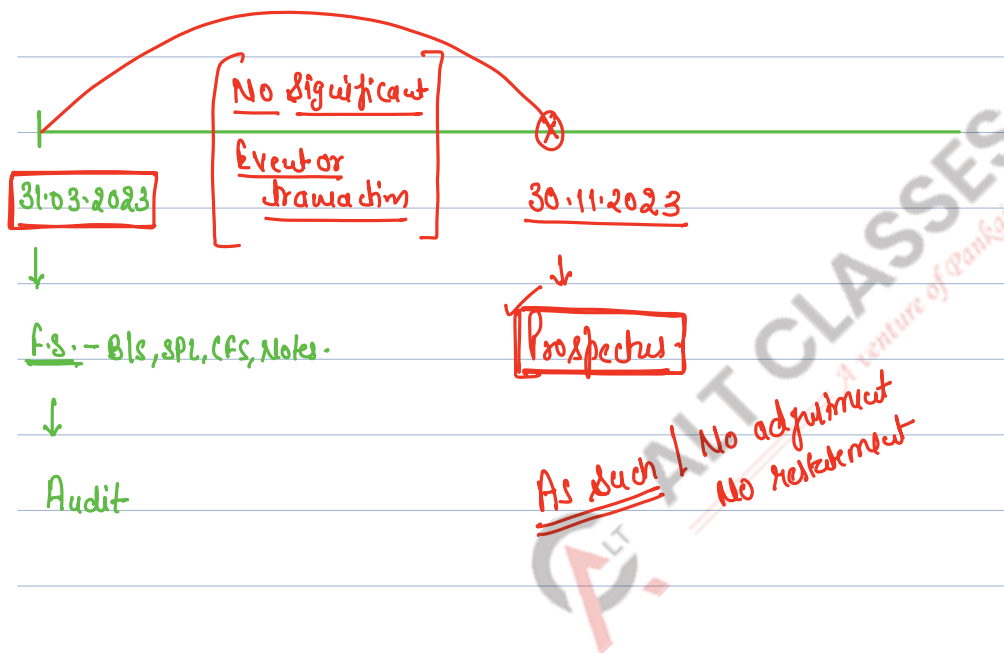 No Significant
Event or
transaction
31.03.2023
30.11.2023
F.S. - B/S, SPL, CFS, Notes.
Prospectus.
Audit
As such / No adjustment
No restatement
ALT CLASSES
A venture of Pankaj
ALT